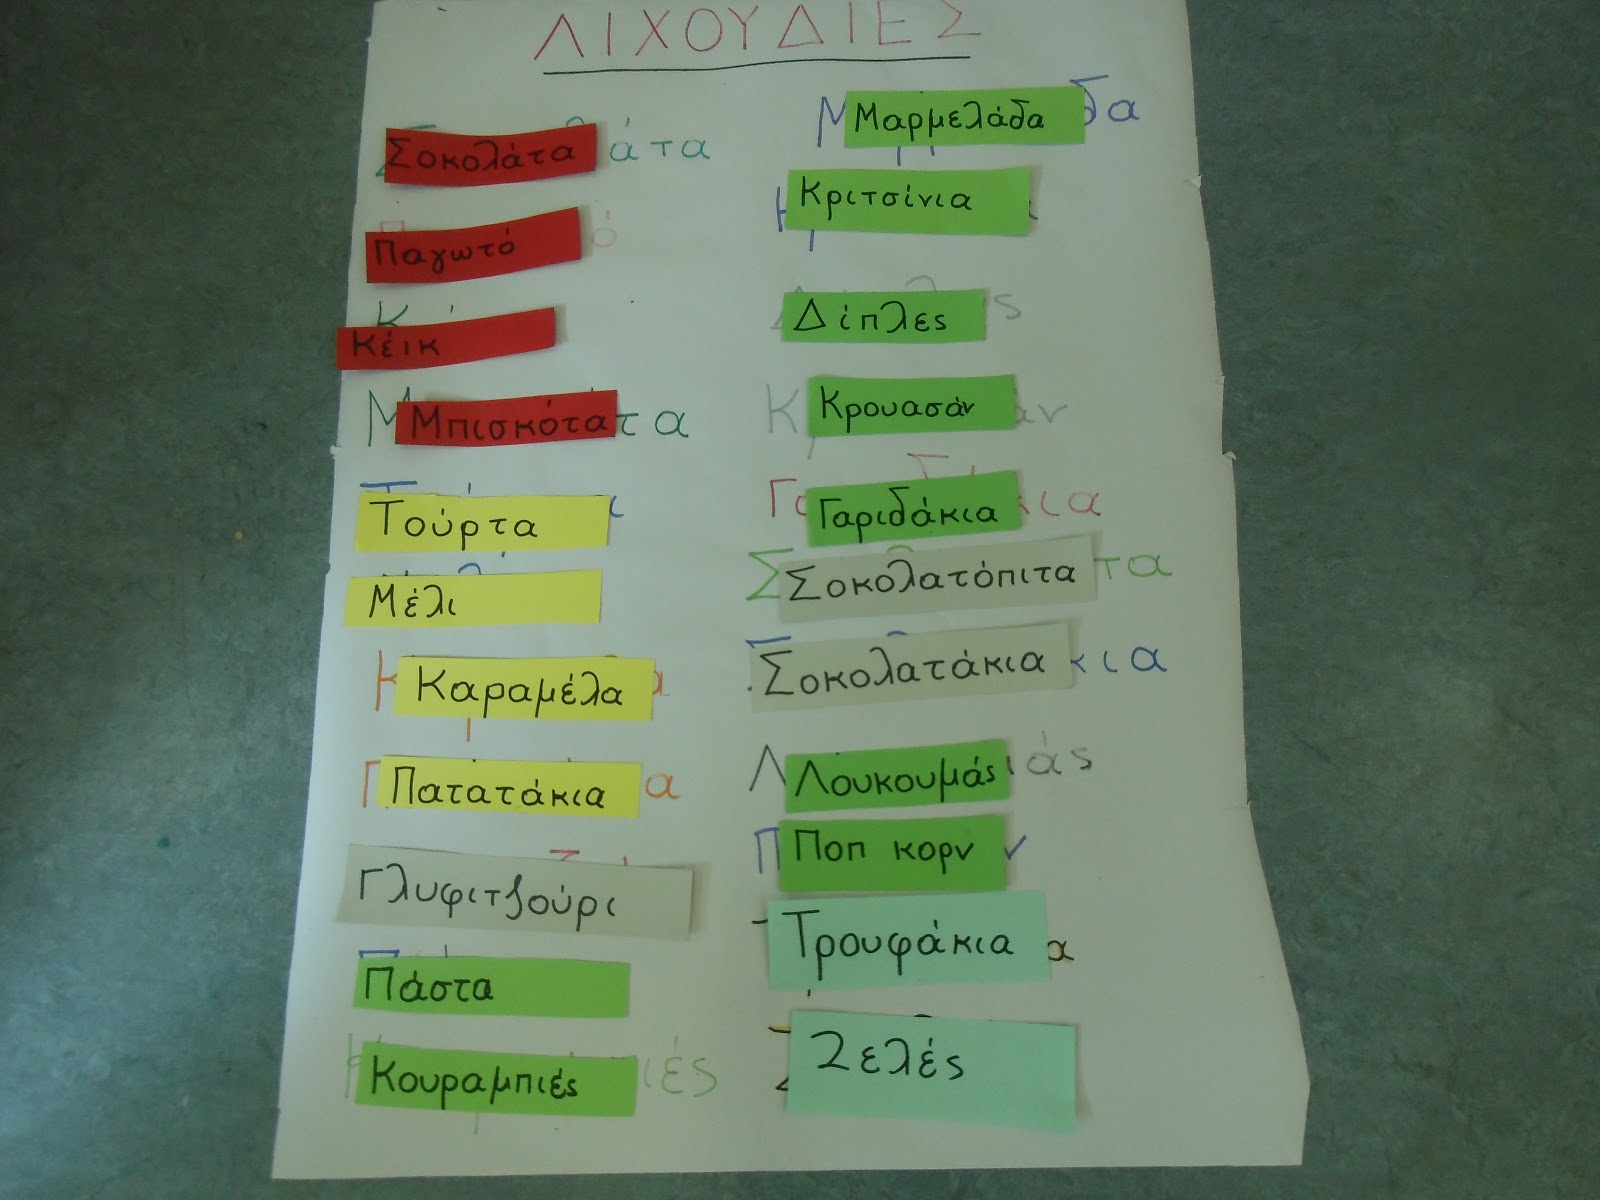 ΛΙΧΟΥΔΙΕΣ
Σοκολάτα
Παγωτό
Κέικ
Μπισκότα
Τούρτα
Μέλι
Καραμέλα
Πατατάκια
Γλυφιτζούρι
Πάστα
Κουραμπιές
Μαρμελάδα
Κριτσίνια
Δίπλες
Κρουασάν
Γαριδάκια
Σοκολατόπιτα
Σοκολατάκια
Λουκουμάς
Ποπ κορν
Τρουφάκια
Ζελές